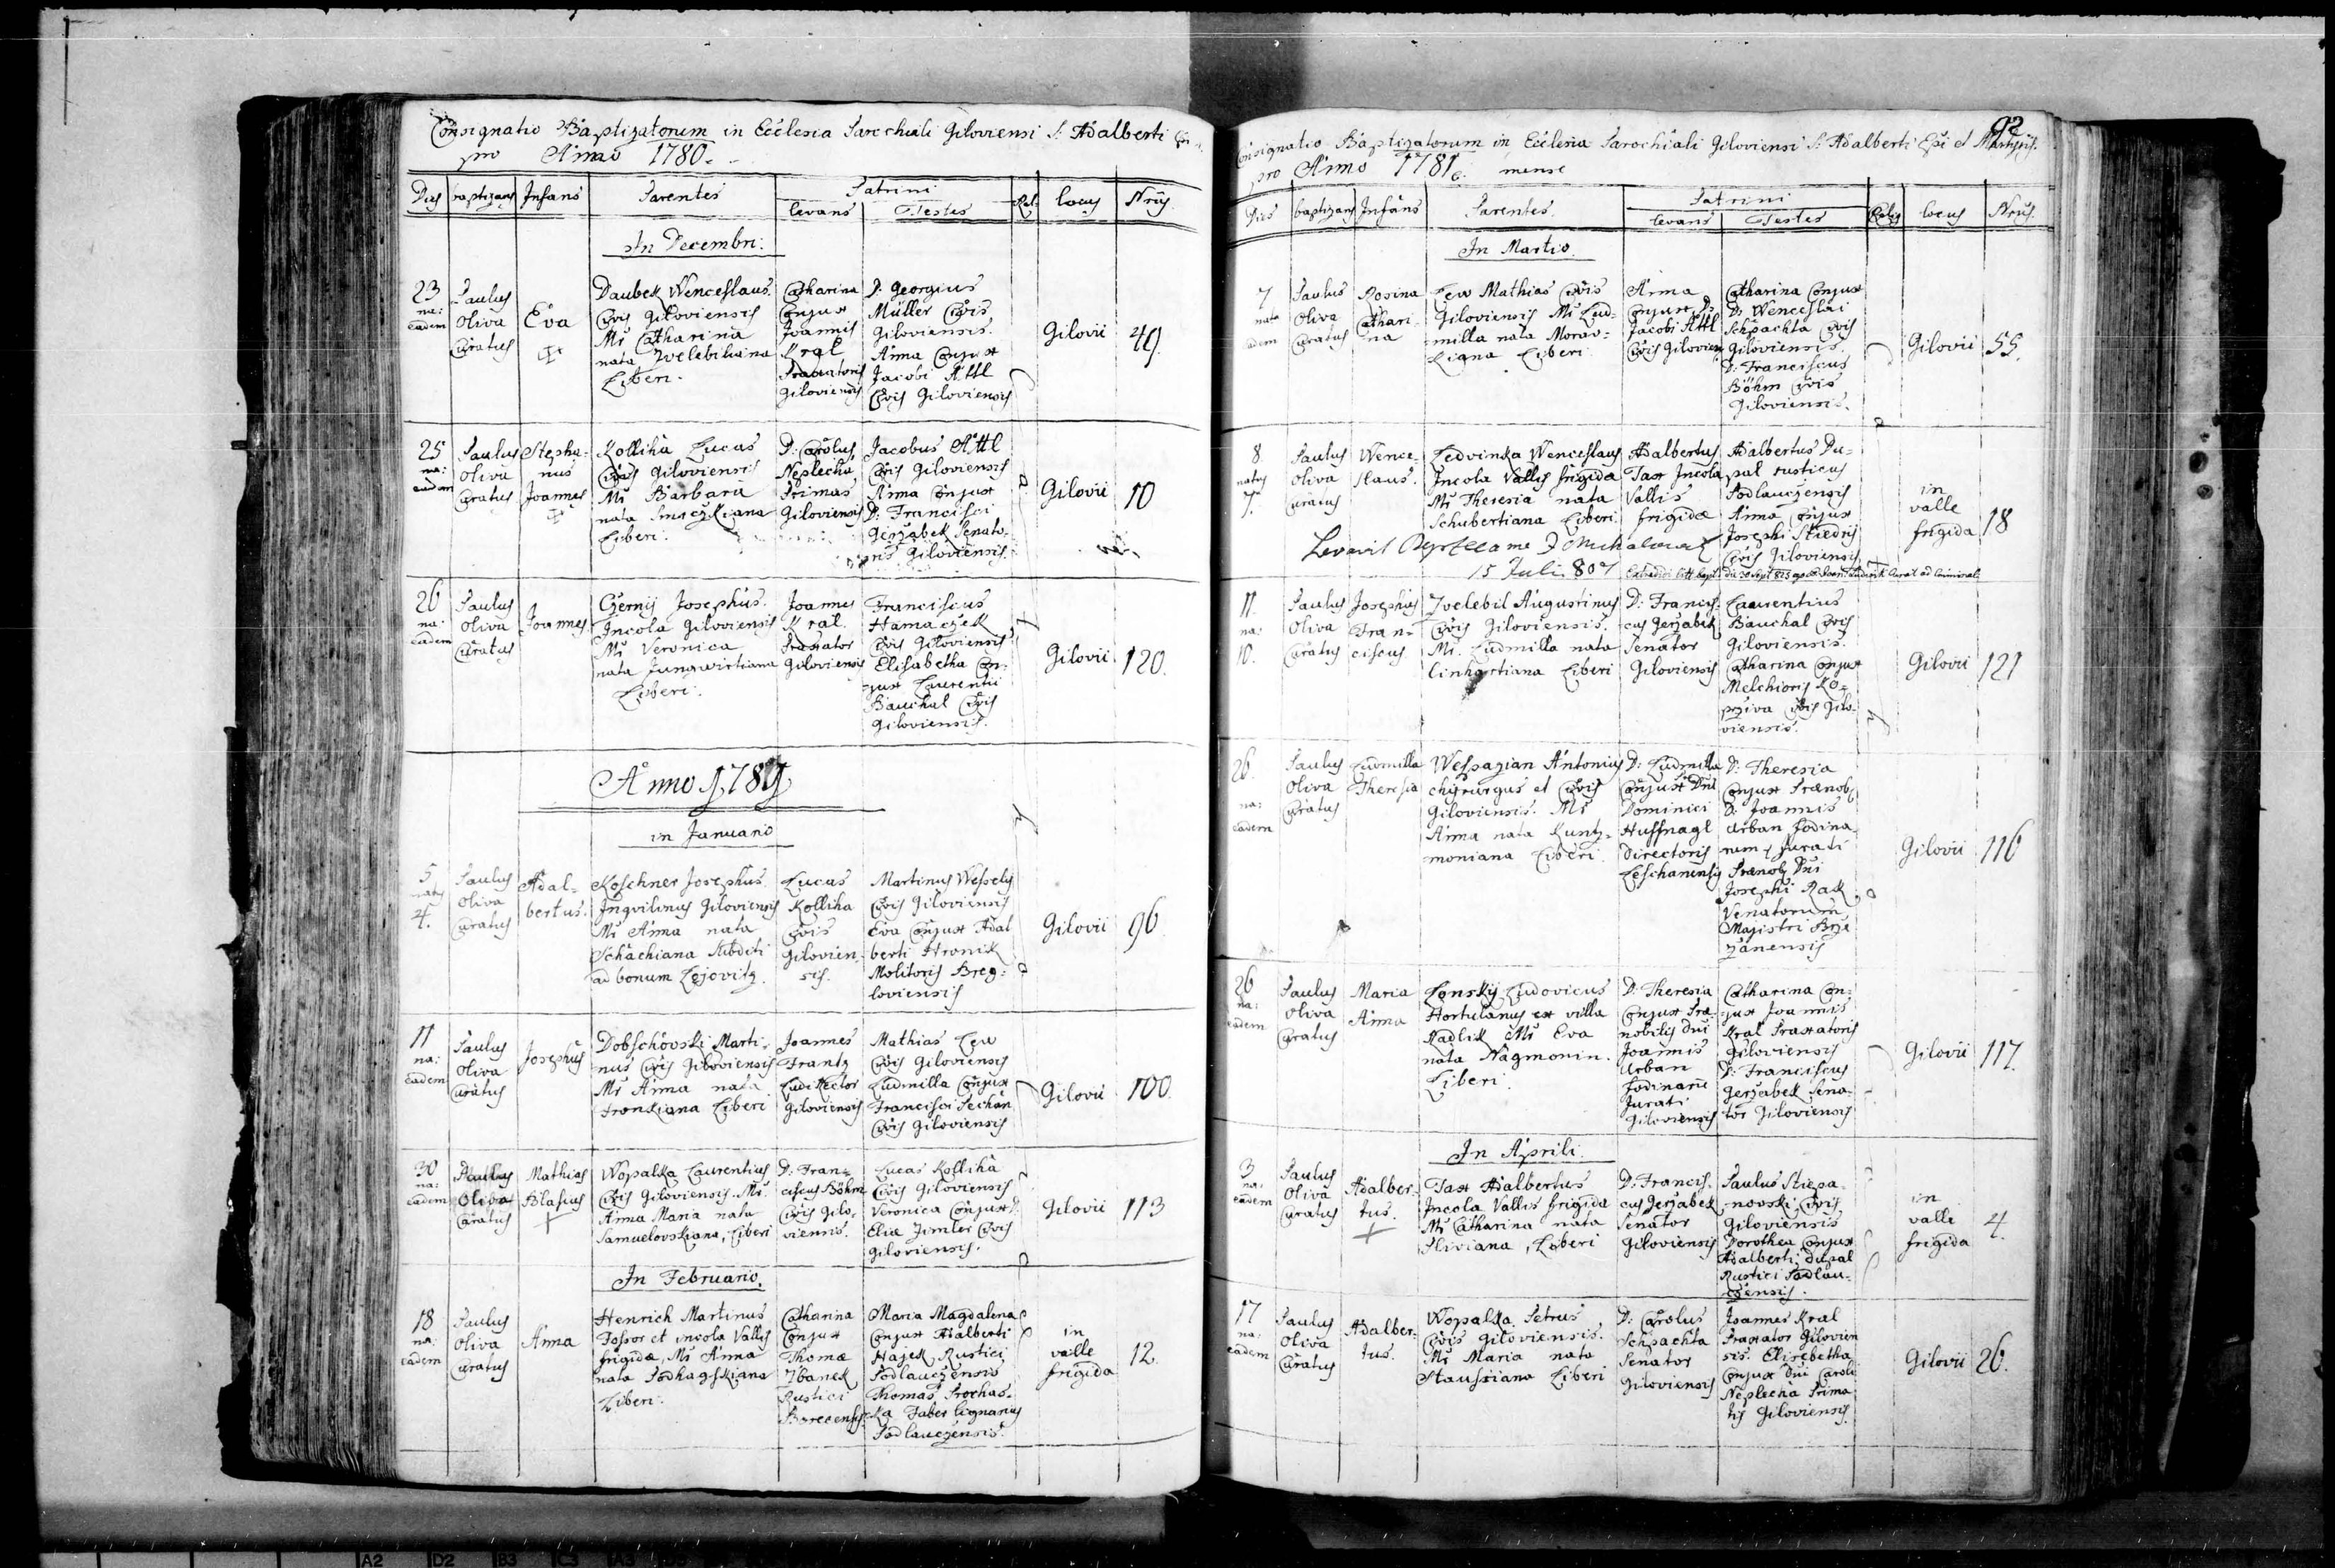 Consignatio Baptizatorum in Ecclesia Parochiali Giloviensi S: Adalberti
pro Anno 1780.
Dies baptizans Infans Parentes Patrini Rel: locus Nrus.
levans Testes
In Decembri:
23
na:
eadem
Paulus
Oliva
Curatus
Eva
Daubek Wenceslaus
Civis Giloviensis
Mr Catharina
nata Zvelebiliana
Liberi.
Catharina
Conjux
Joannis
Kral
Praxatoris
Giloviensis
D: Georgius
Müller Civis
Giloviensis.
Anna Conjux
Jacobi Attl
Civis Giloviensis
Gilovii
49.
25
na:
eadem
Paulus
Oliva
Curatus
Stepha-
nus
Joannes
Kolliha Lucas
Civis Giloviensis
Mr Barbara
nata
Liberi.
D: Carolus
Neplecha
Primas
Giloviensis
Jacobus Attl
Civis Giloviensis
Anna Conjux
D: Francisci
Gerzabek Senato-
ris Giloviensis.
Gilovii
10
26
na:
eadem
Paulus
Oliva
Curatus
Joannes
Czerny Josephus.
Incola Giloviensis
Mr Veronica
nata Jungwirtiana
Liberi.
Joannes
Kral.
Praxator
Giloviensis
Franciscus
Hamaczek
Civis Giloviensis
Elisabetha Con-
jux Laurentii
Bauchal Civis
Giloviensis.
Gilovii
120.
Anno 1781
in Januario
5
natus
4.
Paulus
Oliva
Curatus
Adal-
bertus.
Koschner Josephus
Inqvilinus Giloviensis
Mr Anna nata
Schachiana Subditi
ad bonum Lejovitz.
Lucas
Kolliha
Civis
Gilovien-
sis.
Martinus Wessely
Civis Giloviensis
Eva Conjux Adal
berti Hronik
Molitoris Breg-
loviensis
Gilovii
96.
11
na:
eadem
Paulus
Oliva
Curatus
Josephus
Dobschovski Marti-
nus Civis Giloviensis
Mr Anna nata
Fronkiana Liberi
Joannes
Frantz
Ludi Rector
Giloviensis
Mathias Lew
Civis Giloviensis
Ludmilla Conjux
Francisci Pechan
Civis Giloviensis
Gilovii
100.
30
na:
eadem
Paulus
Oliva
Curatus
Mathias
Blasius
Wopalka Laurentius
Civis Giloviensis. Mr.
Anna Maria nata
Samuelovskiana, Liberi
D: Fran-
ciscus Böhm
Civis Gilo-
viensis.
Lucas Kolliha
Civis Giloviensis
Veronica Conjux
Eliae Zimler Civis
Giloviensis.
Gilovii
113
In Februario.
18
na:
eadem
Paulus
Oliva
Curatus
Anna
Henrich Martinus
Fossor et incola Vallis
frigidae, Mr Anna
nata Podhagskiana
Liberi.
Catharina
Conjux
Thomae
Zbanek
Rustici
Maria Magdalena
Conjux Adalberti
Hajek, Rustici
Podlauczensis
Thomas Prochas-
ka Faber lignarius
Podlauczensis.
in
valle
frigida
12.
92
Consignatio Baptizatorum in Ecclesia Parochiali Giloviensi S: Adalberti Epi et Martyris.
pro Anno 1781. mense
Dies baptizans Infans Parentes. Patrini Relig locus Nrus.
levans Testes
In Martio.
7
nata
eadem
Paulus
Oliva
Curatus
Rosina
Cathari-
na
Lew Mathias Civis
Giloviensis Mr Lud-
milla nata Morav-
kiana Liberi.
Anna
Conjux D:
Jacobi Attl
Civis Gilovien
Catharina Conjux
D: Wenceslai
Schpachta Civis
Giloviensis.
D: Franciscus
Böhm Civis
Giloviensis.
Gilovii
55.
8.
natus
7.
Paulus
Oliva
Curatus
Wence-
slaus.
Ledvinka Wenceslaus
Incola Vallis frigida
Mr Theresia nata
Schubertiana Liberi
Adalbertus
Tax Incola
Vallis
frigidae
Adalbertus Du-
pal rusticus
Podlauczensis
Anna Conjux
Josephi Stiedry
Civis Giloviensis
in
valle
frigida
18
Levavit
15 Juli 807
11.
na:
10.
Paulus
Oliva
Curatus
Josephus
Fran-
ciscus
Zvelebil Augustinus
Civis Giloviensis.
Mr. Ludmilla nata
Linhartiana Liberi
D: Francis-
cus Gerzabek
Senator
Giloviensis
Laurentius
Bauchal Civis
Giloviensis.
Catharina Conjux
Melchioris Ko-
prziva Civis Gilo-
viensis.
Gilovii
121
26.
na:
eadem
Paulus
Oliva
Curatus
Ludmilla
Theresia
Wespazian Antonius
chyrurgus et Civis
Giloviensis. Mr
Anna nata Kuntz-
moniana Liberi.
D: Ludmilla
Conjux Dni
Dominici
Huffnagl
Directoris
Leschanensis
D: Theresia
Conjux Praenob.
D: Joannis
Urban fodina-
rum Jurati
Praenob. Dni
Josephi Rak
Venatorum
Magistri Brze
zanensis
Gilovii
116
26
na:
eadem
Paulus
Oliva
Curatus
Maria
Anna
Lonsky Ludovicus
Hortulanus ex villa
Radlik Mr Eva
nata Nagmonin.
Liberi.
D: Theresia
Conjux Prae-
nobilis Dni
Joannis
Urban
fodinarum
Jurati
Giloviensis
Catharina Con-
jux Joannis
Kral Praxatoris
Giloviensis
D: Franciscus
Gerzabek Sena-
tor Giloviensis
Gilovii
117.
In Aprili.
3
na:
eadem
Paulus
Oliva
Curatus
Adalber-
tus.
Tax Adalbertus
Incola Vallis frigida
Mr Catharina nata
Sliviana, Liberi
D: Francis-
cus Gerzabek
Senator
Giloviensis
Paulus Stiepa-
novski Civis
Giloviensis
Dorothea Conjux
Adalberti Dupal
Rustici Podlau-
czensis.
in
valle
frigida
4.
17
na:
eadem
Paulus
Oliva
Curatus
Adalber-
tus.
Wopalka Petrus
Civis Giloviensis.
Mr Maria nata
Staufziana Liberi
D: Carolus
Schpachta
Senator
Giloviensis
Joannes Kral
Praxator Gilovien
sis. Elisebetha
Conjux Dni Caroli
Neplecha Prima
tis Giloviensis
Gilovii
26.
A2 D2 B3 C3 A3